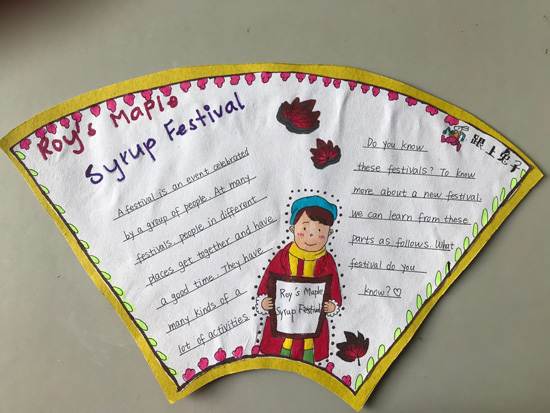 Roy's Maple
Syrup Festival
A festival is an event celebrated
by a group of people. At many
festivals, people in different
places get together and have
a good time. They have
many kinds of a
lot of activities.
Roy's Maple
Syrup Festival
跟上兔子
Do you know
these festivals? To know
more about a new festival.
we can learn from these
parts as follows. What
festival do you
know?♡